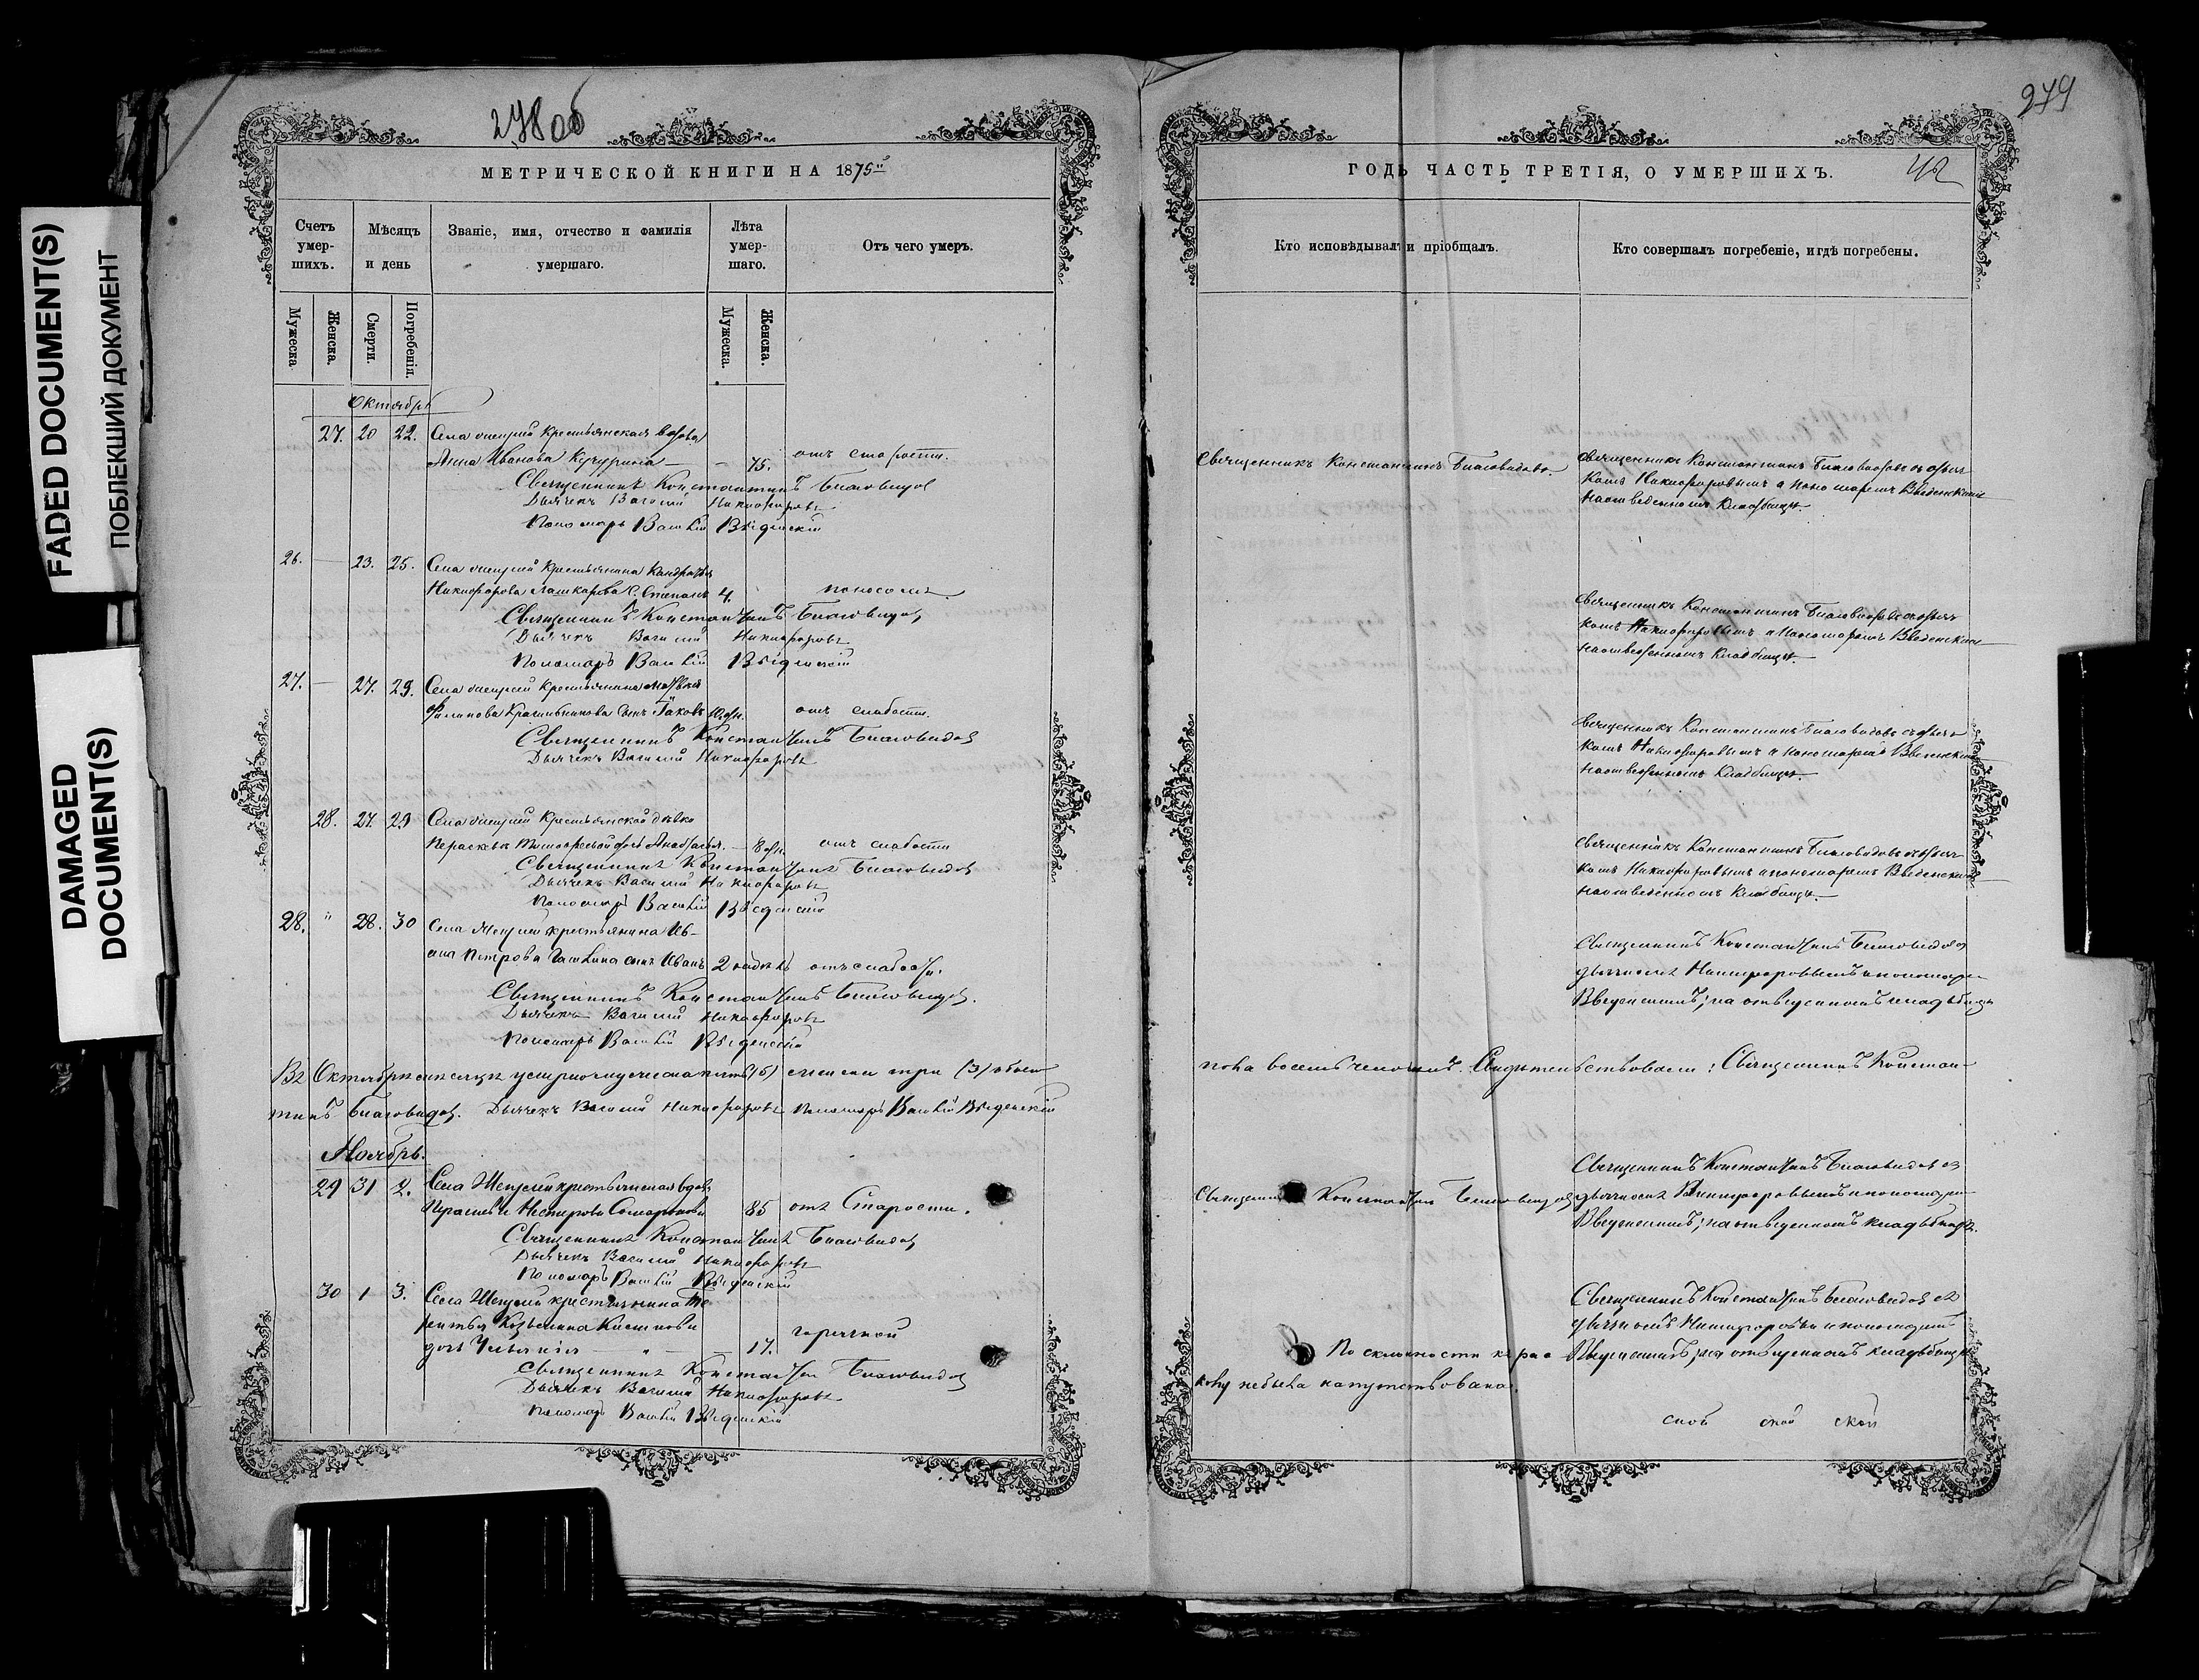 FADED DOCUMENT(S)
ПОБЛЕКШИЙ ДОКУМЕНТ
DAMAGED
DOCUMENT(S)
278об
МЕТРИЧЕСКОЙ КНИГИ НА 1875й
Счетъ умер-шихъ.
Мѣсяцъ и день
Званіе, имя, отчество и фамилія умершаго.
Лѣта умер-шаго.
Отъ чего умеръ.
Мужеска
Женска.
Смерти.
Погребенія.
Мужеска.
Женска.
Октябрь
27. 20 22. Села крестьянская вдова
Анна Иванова — 75. отъ старости.
Священникъ Константинъ Благовидов
Дьячекъ Василий Никифоровъ
Пономарь Василий Введенский
26. — 23. 25. Села крестьянина
Никифорова Лашкарева с. Степанъ 4. поносомъ.
Священникъ Константинъ Благовидов
Дьячекъ Василий Никифоровъ
Пономарь Василий Введенский
27. — 27. 29. Села крестьянина
сынъ Iаковъ отъ слабости.
Священникъ Константинъ Благовидов
Дьячекъ Василий Никифоровъ
28. 27. 29 Села крестьянской дѣвки
— 8 отъ слабости
Священникъ Константинъ Благовидов
Дьячекъ Василий Никифоровъ
Пономарь Василий Введенский
28. " 28. 30 Села крестьянина Ив-
ана Петрова сынъ Иванъ 2 недѣль отъ слабости.
Священникъ Константинъ Благовидов.
Дьячекъ Василий Никифоровъ
Пономарь Василий Введенский
Въ Октябрѣ мѣсяцѣ умерло мужеска пять (5) женска три (3) обоего
тинъ Благовидов. Дьячекъ Василий Никифоровъ Пономарь Василий Введенский
Ноябрь.
29 31 2. Села крестьянская вдова
Нестерова 85 отъ Старости.
Священникъ Константинъ Благовидов
Дьячекъ Василий Никифоровъ
Пономарь Василий Введенский
30 1 3. Села крестьянина Те-
рентья
" — 17. горячкой
Священникъ Константин Благовидов
Дьячекъ Василий Никифоровъ
Пономарь Василий Введенский
279
ГОДЪ ЧАСТЬ ТРЕТІЯ, О УМЕРШИХЪ.
42
Кто исповѣдывалъ и пріобщалъ.
Кто совершалъ погребеніе, и гдѣ погребены.
Священникъ Константинъ Благовидовъ.
Священникъ Константинъ Благовидовъ съ дьяч-
комъ Никифоровымъ и пономаремъ Введенскимъ
на отведенномъ кладбищѣ.
Священникъ Константинъ Благовидовъ съ дьяч-
комъ Никифоровымъ и Пономаремъ Введенским
на отведенномъ Кладбищѣ.
Священникъ Константинъ Благовидовъ съ дьяч-
комъ Никифоровымъ и пономаремъ Введенским
на отведенномъ Кладбищѣ.
Священникъ Константинъ Благовидовъ съ дьяч-
комъ Никифоровымъ и пономаремъ Введенским
на отведенномъ Кладбищѣ.
Священникъ Константинъ Благовидов съ
дьячкомъ Никифоровымъ и пономаремъ
Введенскимъ; на отведенномъ кладбищѣ
пола восемь человѣкъ. Свидѣтельствовали: Священникъ Констан-
Священникъ Константинъ Благовидов
Священникъ Константинъ Благовидов съ
дьячкомъ Никифоровымъ и пономарем
Введенскимъ; на отведенномъ кладбищѣ.
По склонности къ рас-
колу небыла напутствована.
Священникъ Константинъ Благовидов съ
дьячкомъ Никифоровым и пономарем
Введенскимъ; на отведенномъ кладбищѣ